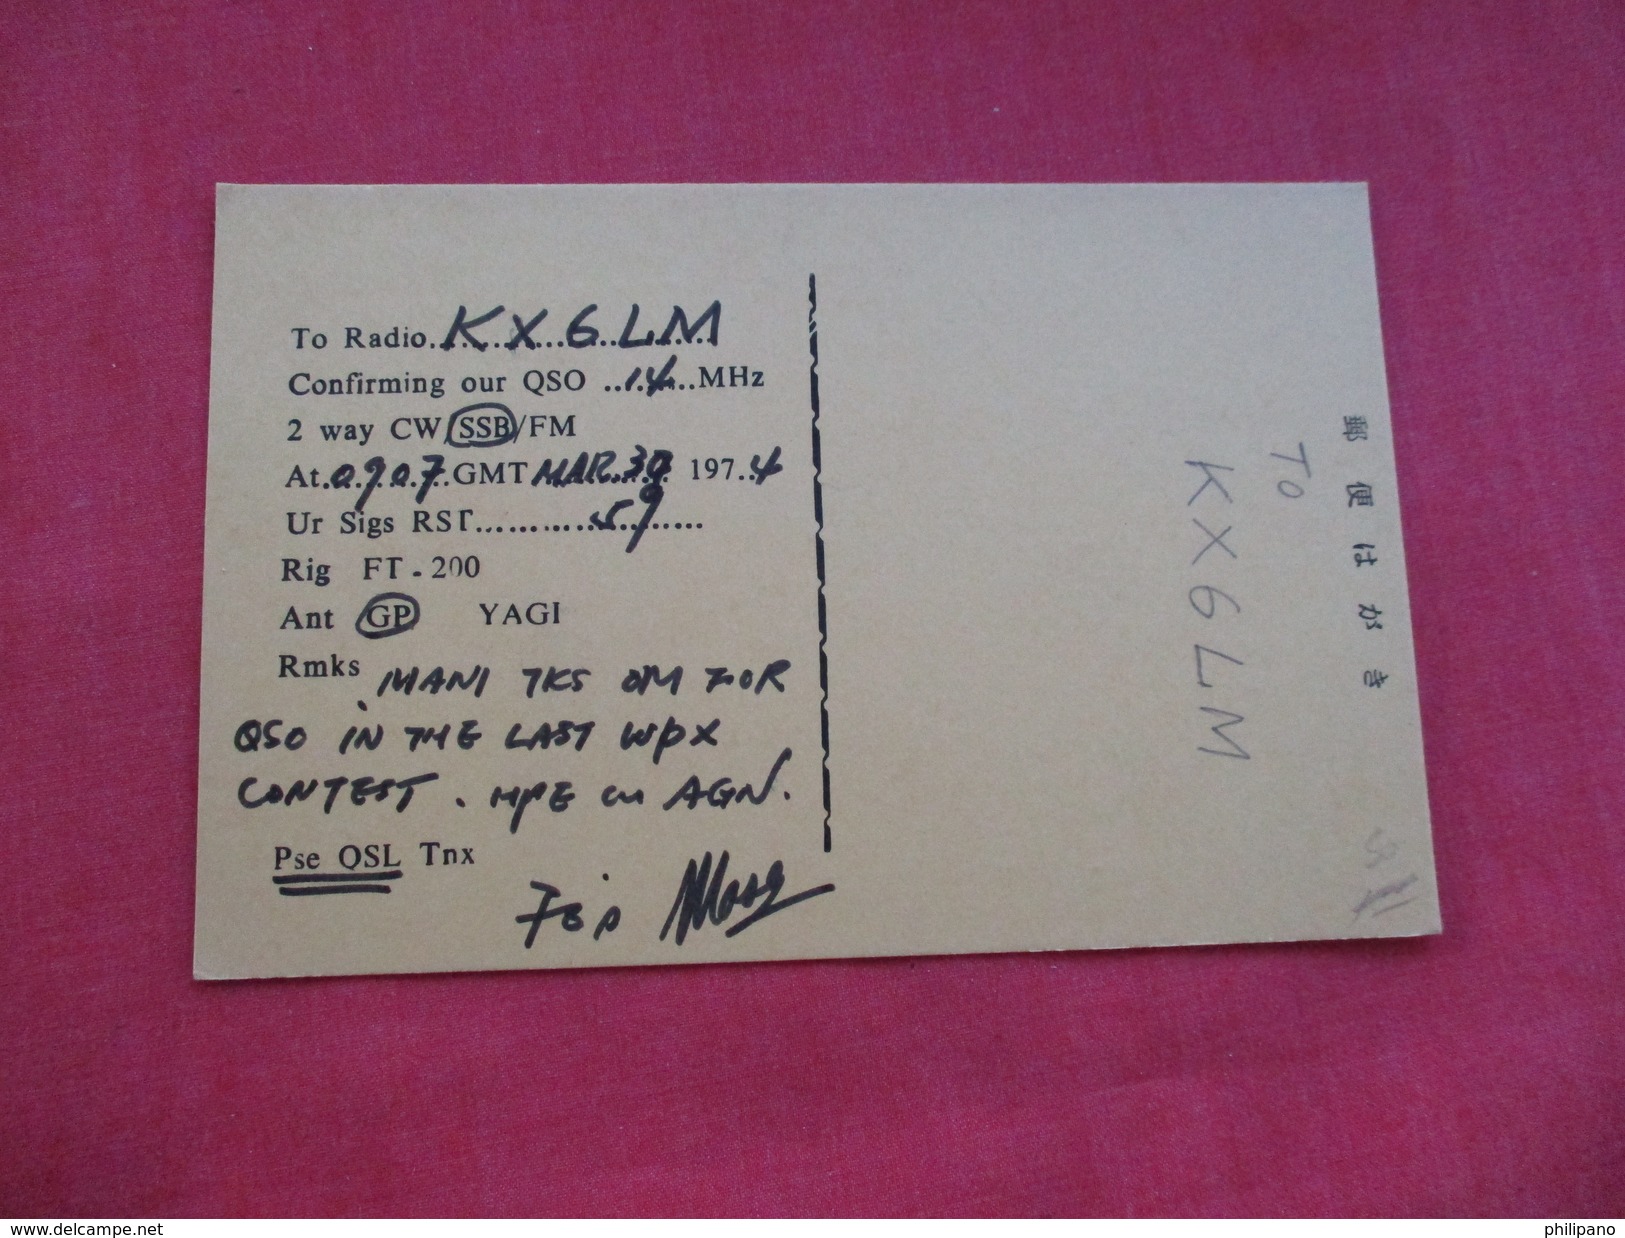 To Radio KX6LM
Confirming our QSO ..14..MHz
2 way CW/SSB/FM
At.0907.GMT MAR.30 197.4
Ur Sigs RST............59......
Rig FT-200
Ant GP YAGI
Rmks MANI TKS OM FOR
QSO IN THE LAST WPX
CONTEST. HPE CU AGN.
Pse QSL Tnx
73's
郵便はがき
TO
KX6LM
www.delcampe.net
philipano